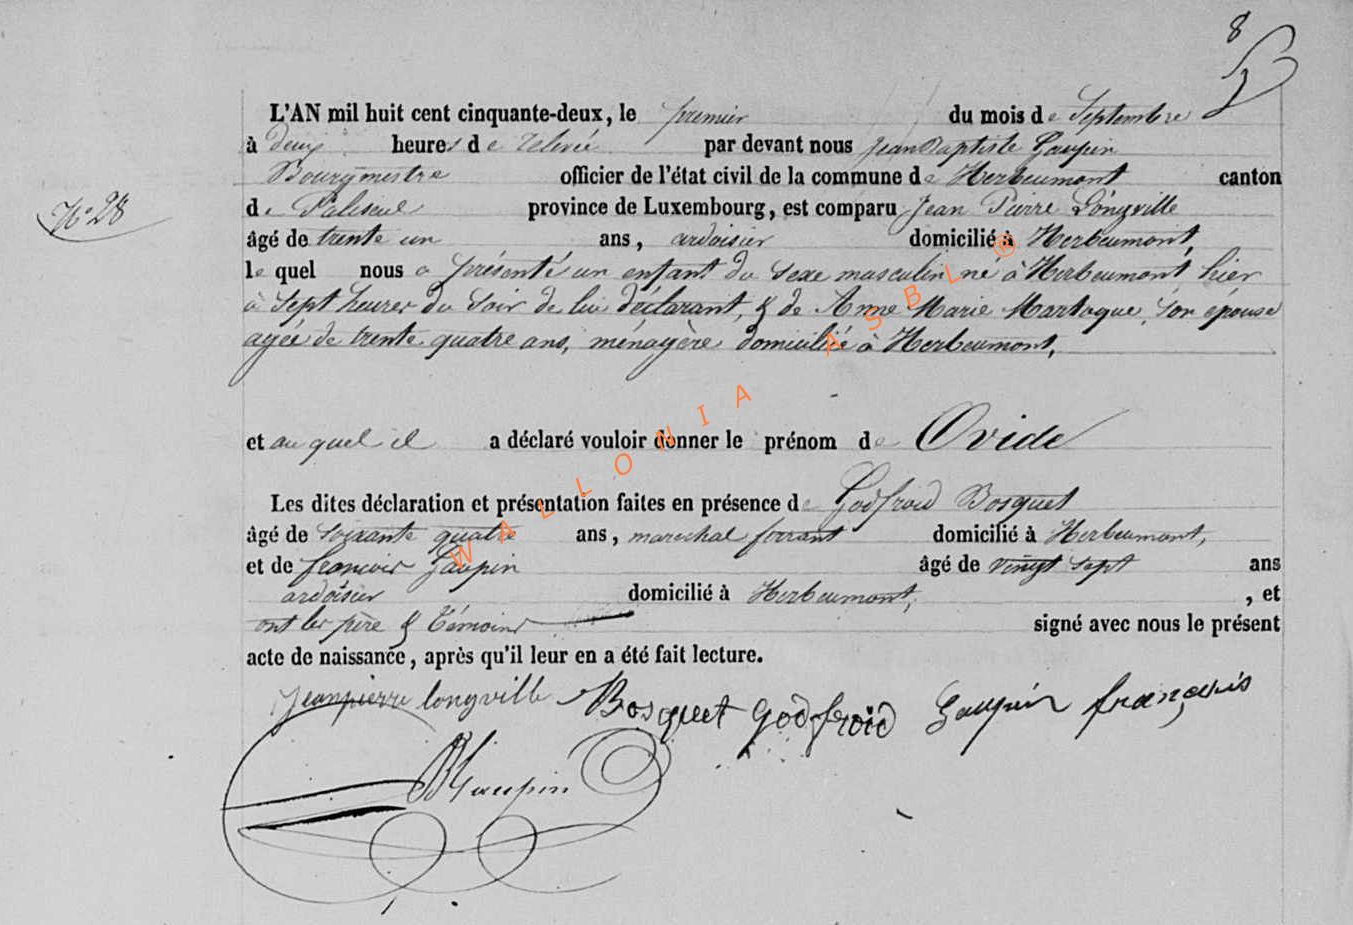 8
L'AN mil huit cent cinquante-deux, le premier du mois de Septembre
à deux heures de relevée par devant nous Jean Baptiste Gaupin
Bourgmestre officier de l'état civil de la commune de Herbeumont canton
N° 28
de Paliseul province de Luxembourg, est comparu Jean Pierre Longville
âgé de trente un ans, ardoisier domicilié à Herbeumont,
le quel nous a présenté un enfant du sexe masculin né à Herbeumont, hier
à sept heures du soir de lui déclarant, & de Anne Marie Martoque, son épouse
agée de trente quatre ans, ménagère domicilié à Herbeumont,
et au quel il a déclaré vouloir donner le prénom de Ovide
Les dites déclaration et présentation faites en présence de Godfroid Bosquet
âgé de soixante quatre ans, marechal ferrant domicilié à Herbeumont,
et de francois Gaupin âgé de vingt sept ans
ardoisier domicilié à Herbeumont, , et
ont les père & témoins signé avec nous le présent
acte de naissance, après qu'il leur en a été fait lecture.
Jeanpierre longville Bosquet godfroid Gaupin françois
JB Gaupin
WALLONIA ASBL ®